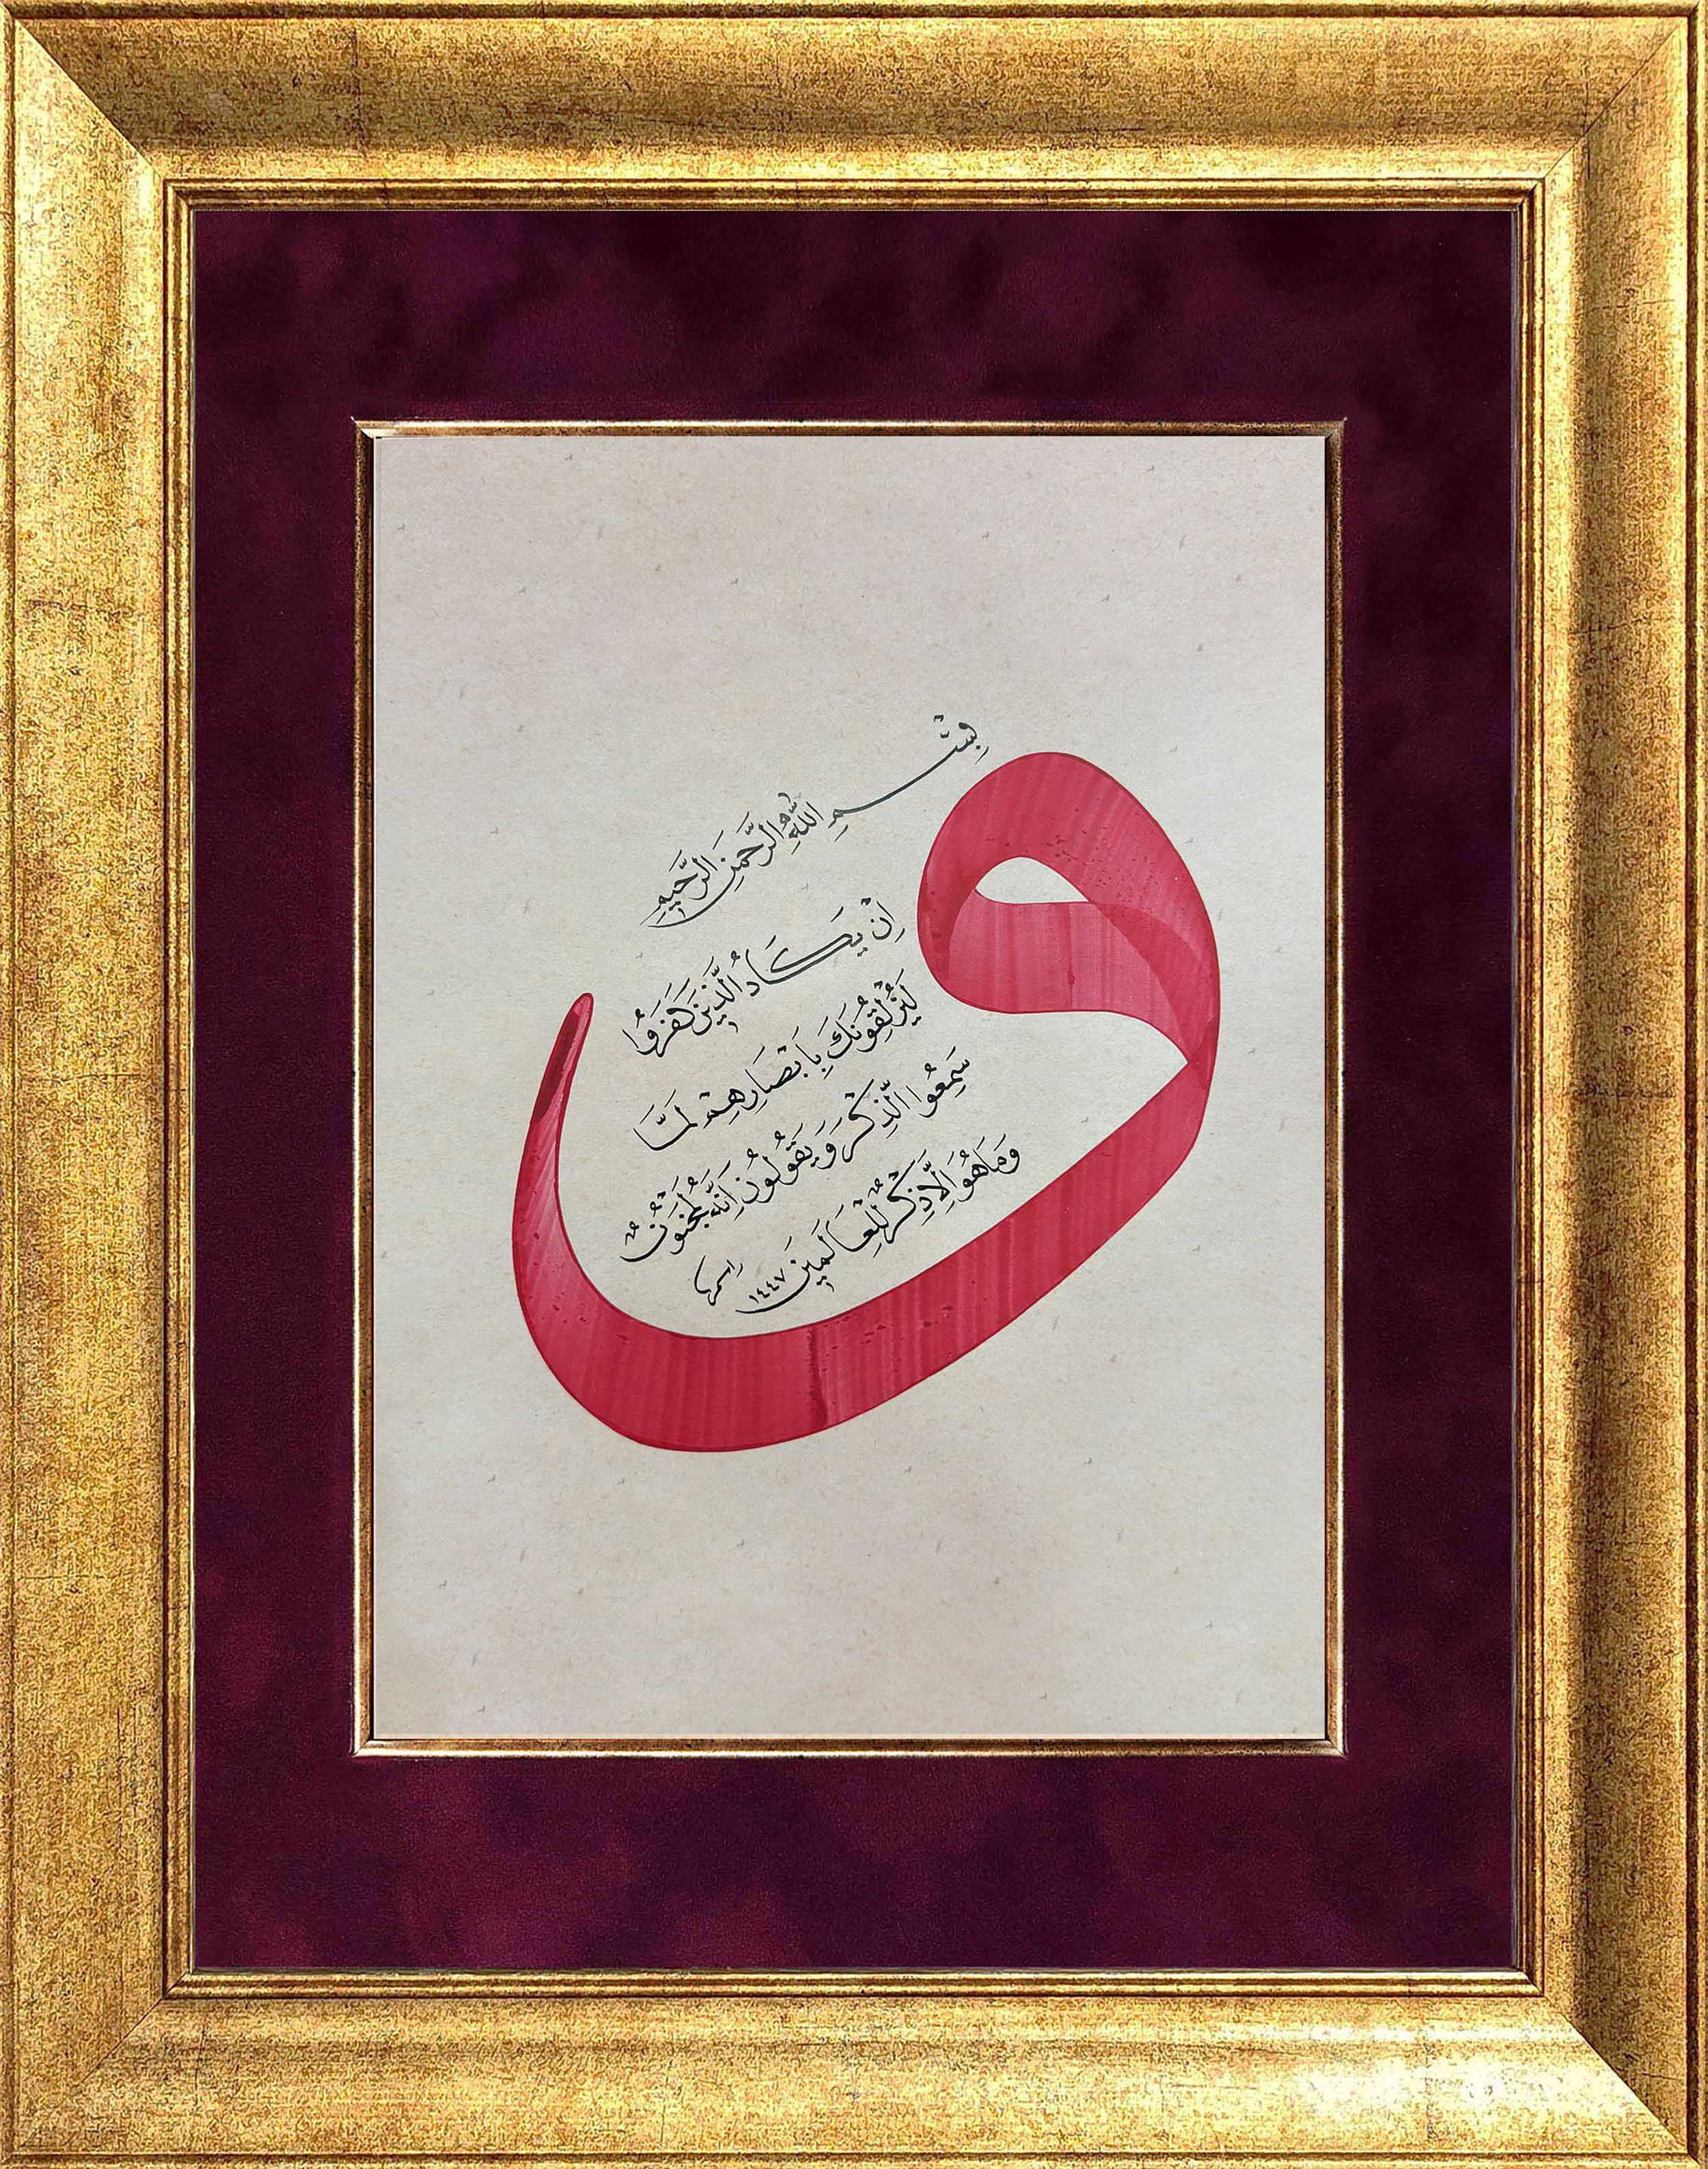 و
بِسْمِ اللّٰهِ الرَّحْمٰنِ الرَّحِيمِ
اِنْ يَكَادُ الَّذِينَ كَفَرُوا
لَيُزْلِقُونَكَ بِاَبْصَارِهِمْ لَمَّا
سَمِعُوا الذِّكْرَ وَيَقُولُونَ اِنَّهُ لَمَجْنُونٌ
وَمَا هُوَ اِلَّا ذِكْرٌ لِلْعَالَمِينَ
١٤٤٧